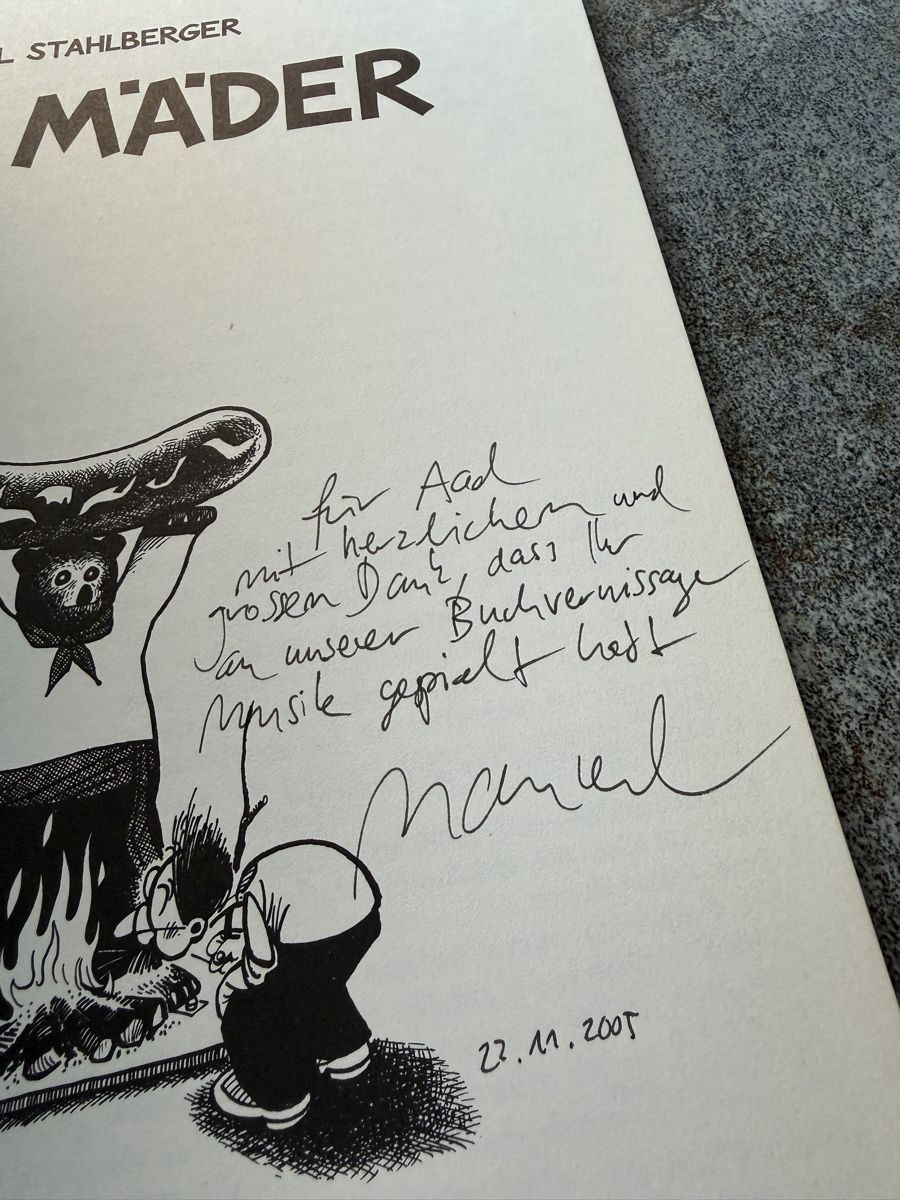 L STAHLBERGER
MÄDER
für Aad
mit herzlichem und
grossem Dank, dass Ihr
an unserer Buchvernissage
Musik gespielt habt
Manuel
27.11.2005